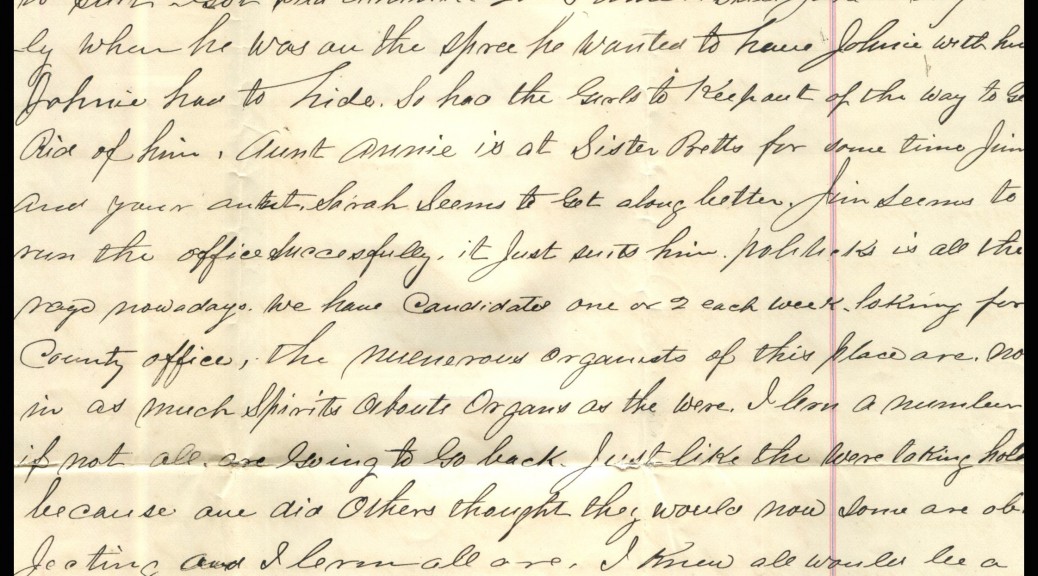 ly when he was on the spree he wanted to have Johnie with him
Johnie had to hide. So had the Girls to Keep out of the way to Ge
Rid of him. Aunt Annie is at Sister Betts for some time Jim
and your autnt. Sarah Seems to Get along better. Jim seems to
run the office succesfully. it Just suits him. politicks is all the
rage nowadays. we have Candidates one or 2 each week. loking for
County office, the numerous organists of this place are. no
in as much Spirits abouts Organs as the were. I lern a number
if not all. are Going to Go back. Just like the were taking hold
because one did Others thought they would now some are ob
Jecting and I lern all are. I knew all would be a